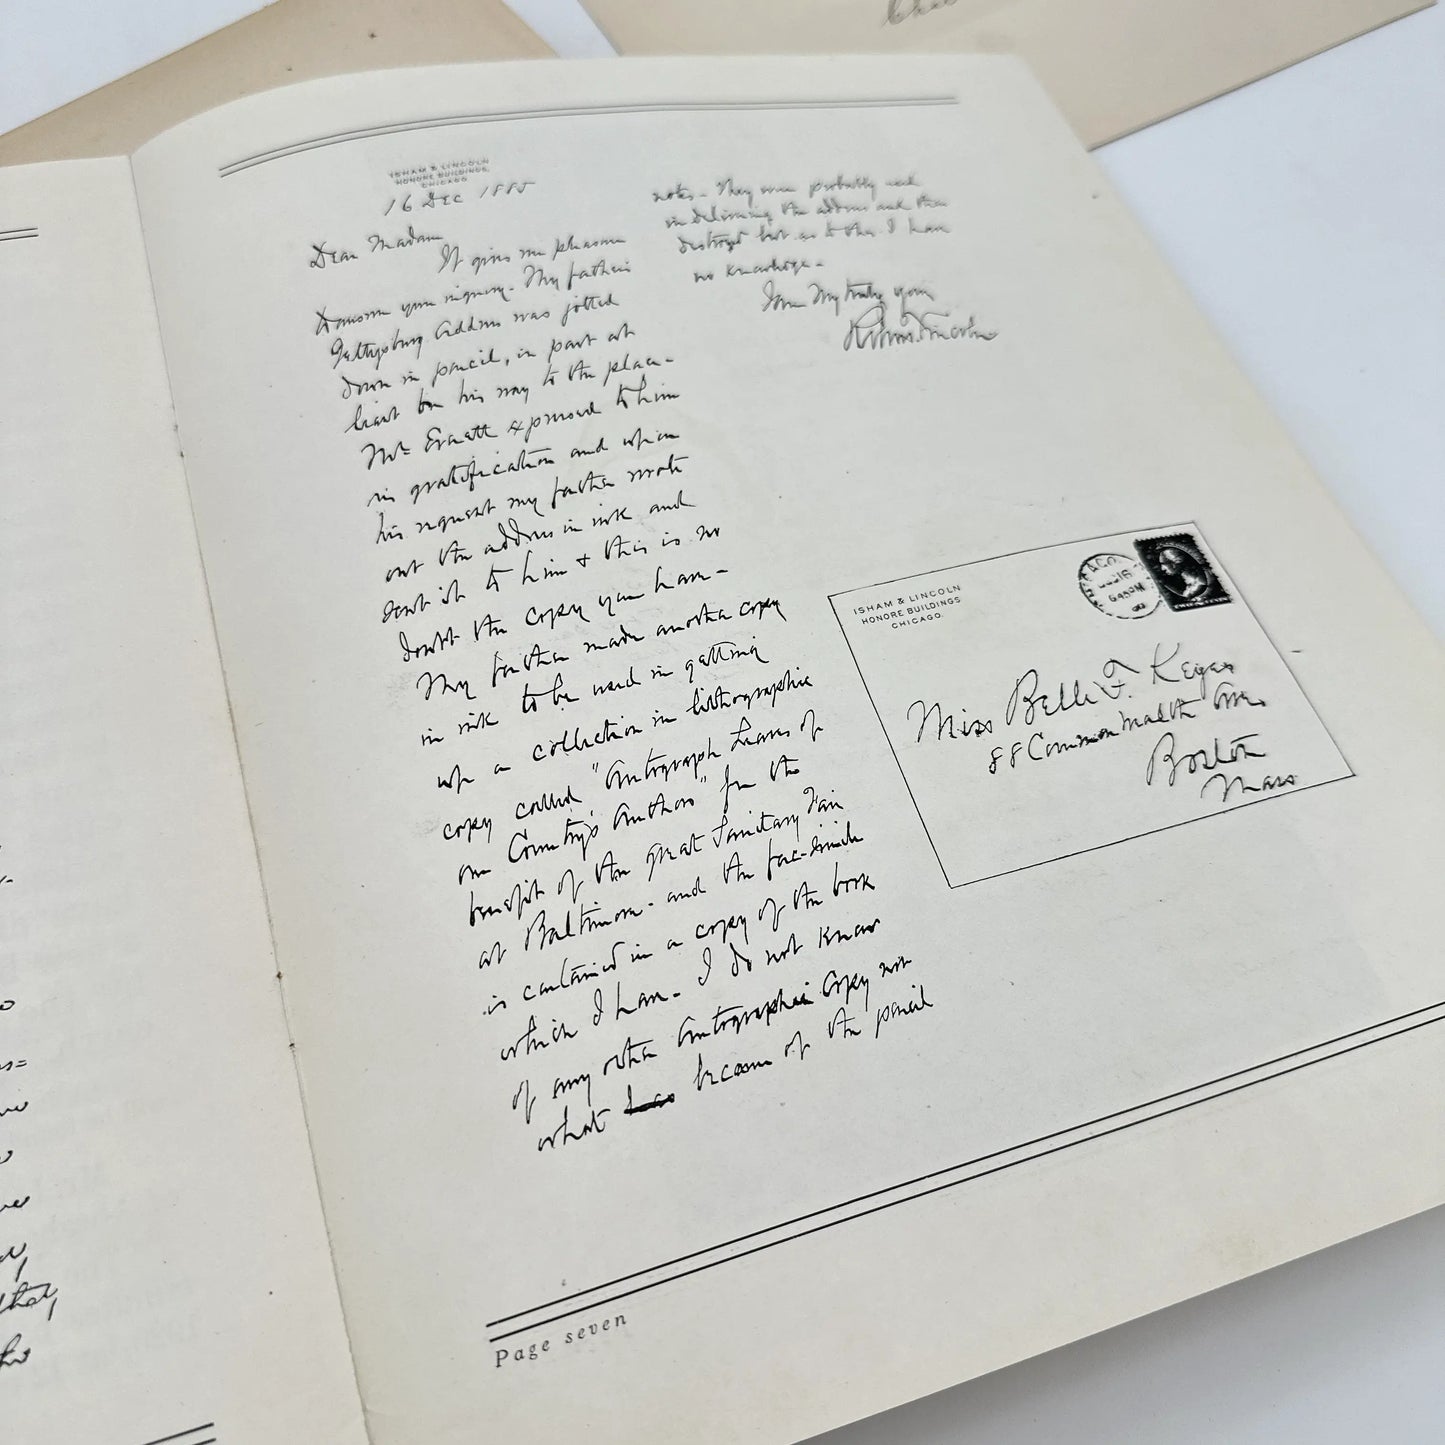 ISHAM & LINCOLN
HONORE BUILDINGS,
CHICAGO
16 Dec 1885
Dear Madam
It gives me pleasure
to answer your inquiry. My father's
Gettysburg Address was jotted
down in pencil, in part at
least on his way to the place-
Mr Everett expressed to him
his gratification and upon
his request my father wrote
out the address in ink and
sent it to him & this is no
doubt the copy you have-
My father made another copy
in ink to be used in getting
up a collection in lithographic
copy called "Autograph Leaves of
our Country's Authors" for the
benefit of the great Sanitary Fair
at Baltimore- and the fac-simile
is contained in a copy of the book
which I have- I do not know
of any other Autographic Copy nor
what has become of the pencil
notes- They were probably used
in delivering the address and then
destroyed but as to this I have
no knowledge-
I am Very truly yours
Robert T. Lincoln
ISHAM & LINCOLN
HONORE BUILDINGS
CHICAGO.
Miss Belle F. Keyes
88 Commonwealth Ave.
Boston
Mass
Page seven
that,